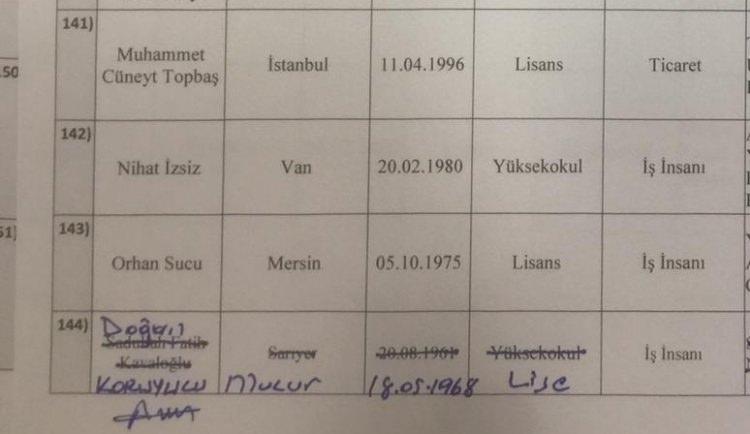 141)
Muhammet
Cüneyt Topbaş
İstanbul
11.04.1996
Lisans
Ticaret
.50
142)
Nihat İzsiz
Van
20.02.1980
Yüksekokul
İş İnsanı
51)
143)
Orhan Sucu
Mersin
05.10.1975
Lisans
İş İnsanı
144)
Doğan
Sadullah Fatih
Kavaloğlu
KORUYUCU
Sarıyer
Mucur
20.08.1961
18.05.1968
Yüksekokul
Lise
İş İnsanı